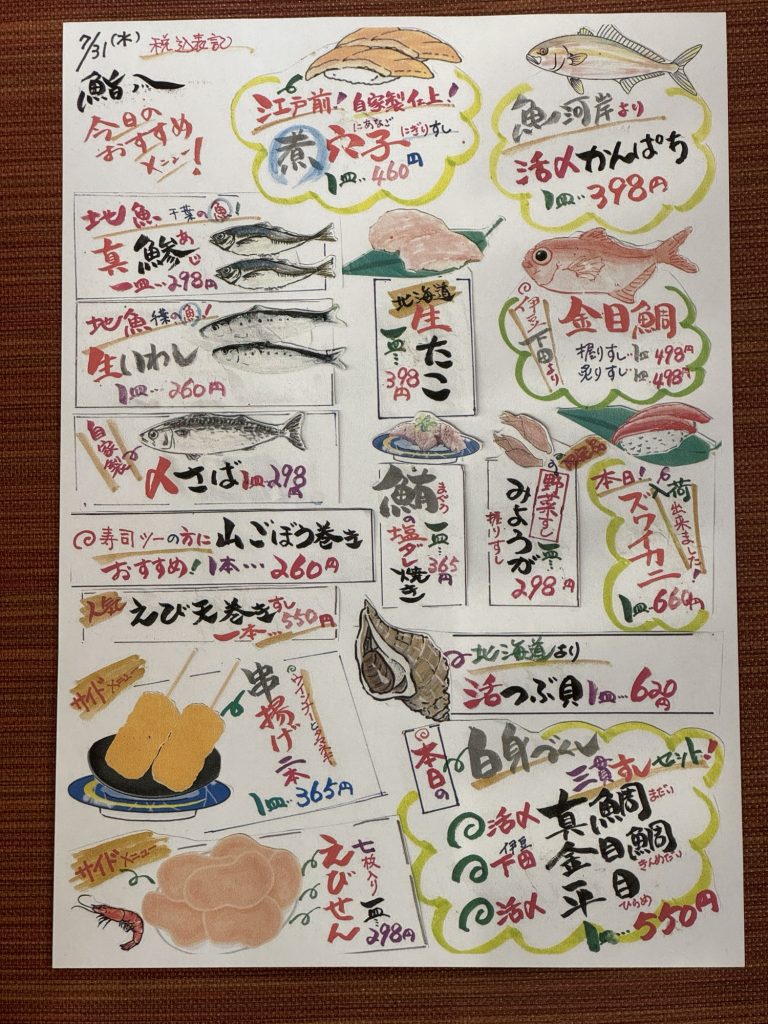 7/31(木) 税込表記
鮨八
今日の
おすすめ
メニュー!
江戸前!自家製仕上!
にあなご
煮穴子にぎりすし
1皿…460円
魚河岸より
活〆かんぱち
1皿…398円
地魚 千葉の魚!
真鯵 あじ
一皿…298円
地魚 千葉の魚!
生いわし
1皿…260円
自家製
〆さば 1皿…298円
寿司ツーの方に 山ごぼう巻き
おすすめ! 1本…260円
人気 えび天巻きすし
一本…550円
北海道
生たこ
一皿…398円
伊豆下田より
金目鯛
握りすし…1皿498円
炙りすし…1皿498円
まぐろ
鮪の塩ダレ焼き
一皿…365円
野菜すし
みょうが
握りすし
一皿…298円
本日!入荷出来ました!
ズワイカニ
1皿…660円
北海道より
活つぶ貝 1皿…620円
サイドメニュー
串揚げ二本
1皿…365円
サイドメニュー
七枚入り
えびせん
一皿…298円
本日の
白身づくし
三貫すしセット!
活〆 真鯛 まだい
伊豆下田 金目鯛 きんめだい
活〆 平目 ひらめ
1皿…550円